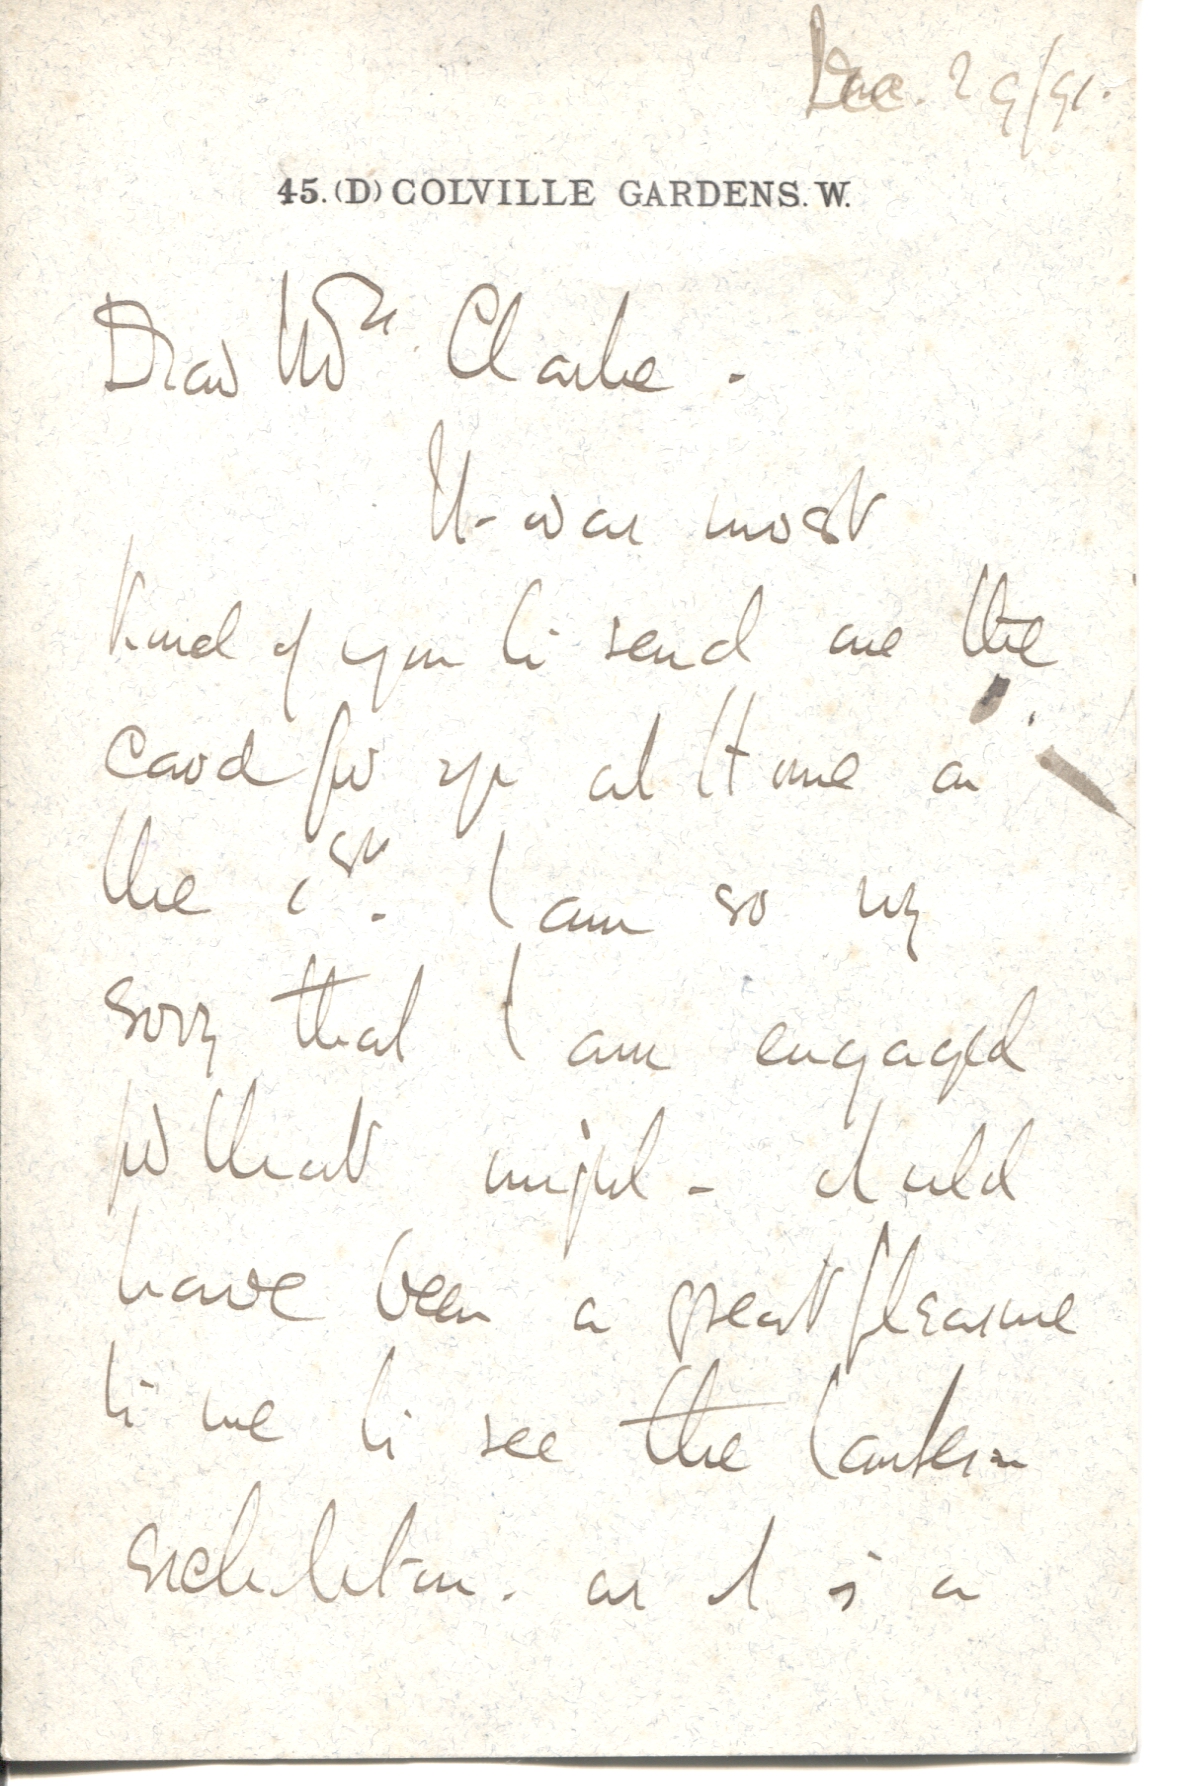 Dec. 29/91.
45.(D) COLVILLE GARDENS. W.
Dear Mrs. Clarke -
It was most
kind of you to send me the
card for yr at Home on
the 1st. I am so very
sorry that I am engaged
for that night - it would
have been a great pleasure
to me to see the lantern
as it is a